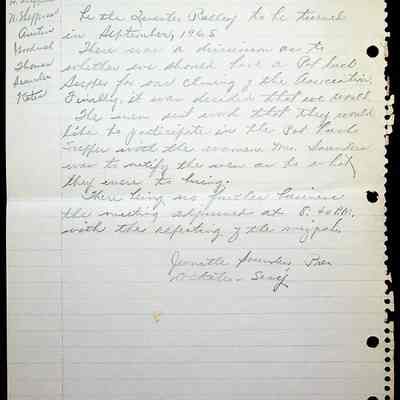 W. Sheppard
Austin
Saunders
Yates
to the Quarter Rally to be turned
in September, 1965
There was a discussion as to
whether we should have a Pot Luck
Supper for our closing of the Association.
Finally, it was decided that we would.
The men sent word that they would
like to participate in the Pot Luck
Supper with the women. Mrs. Saunders
was to notify the men as to what
they were to bring.
There being no further business
the meeting adjourned at 8:40 P.M.
with the repeating of the mizpah.
Jeanette Saunders Pres
Yates - Sec'y